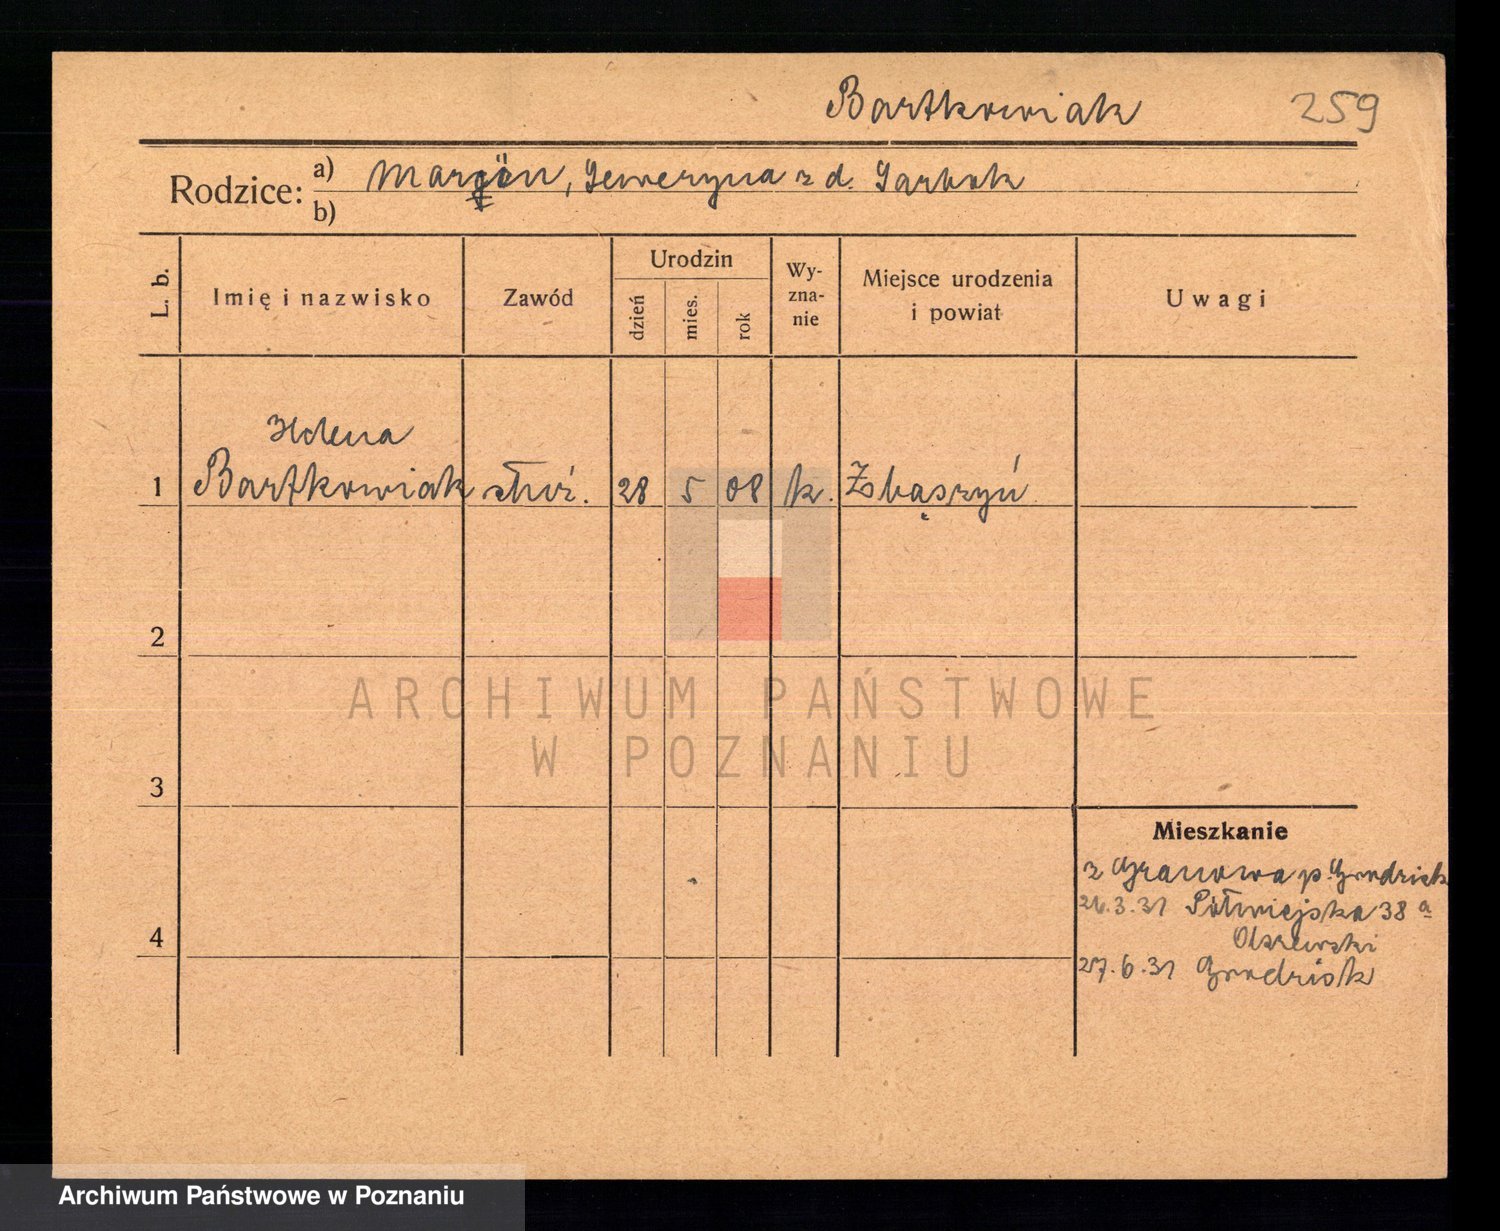 Bartkowiak 259
Rodzice: a) Marcin, Seweryna z d.
b)
L. b. Imię i nazwisko Zawód Urodzin dzień mies. rok Wy-zna-nie Miejsce urodzenia i powiat Uwagi
Helena
1 Bartkowiak służ. 28 5 08 k. Zbąszyń
2
ARCHIWUM PAŃSTWOWE
W POZNANIU
3
Mieszkanie
z Granowa p. Grodzisk
3.31 Półwiejska 38 a
4
Olszewski
27.6.31 Grodzisk
Archiwum Państwowe w Poznaniu